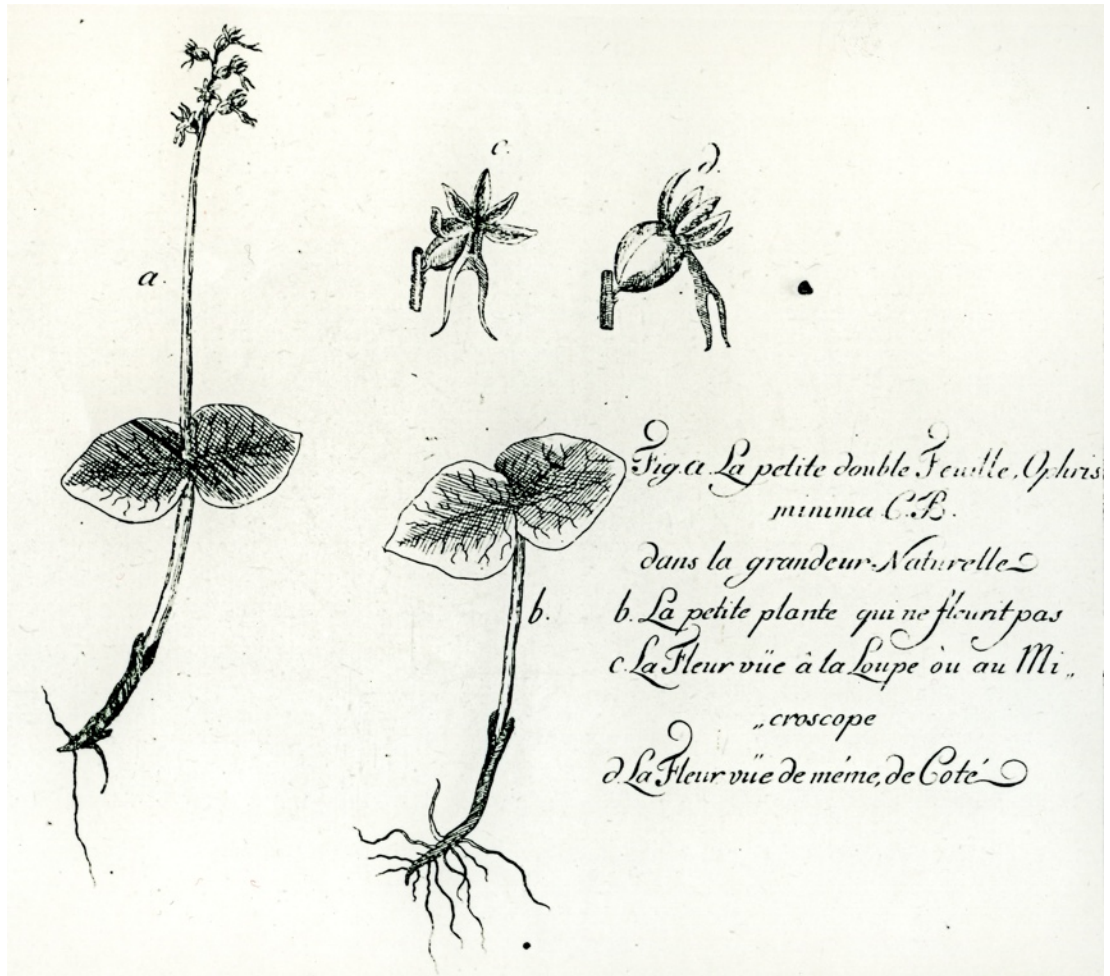 a.
c.
d.
b.
Fig. a La petite double Feuille, Ophris
minima C.B.
dans la grandeur Naturelle
b. La petite plante qui ne fleurit pas
c La Fleur vüe â la Loupe òu au Mi„
„croscope
d La Fleur vüe de méme, de Coté